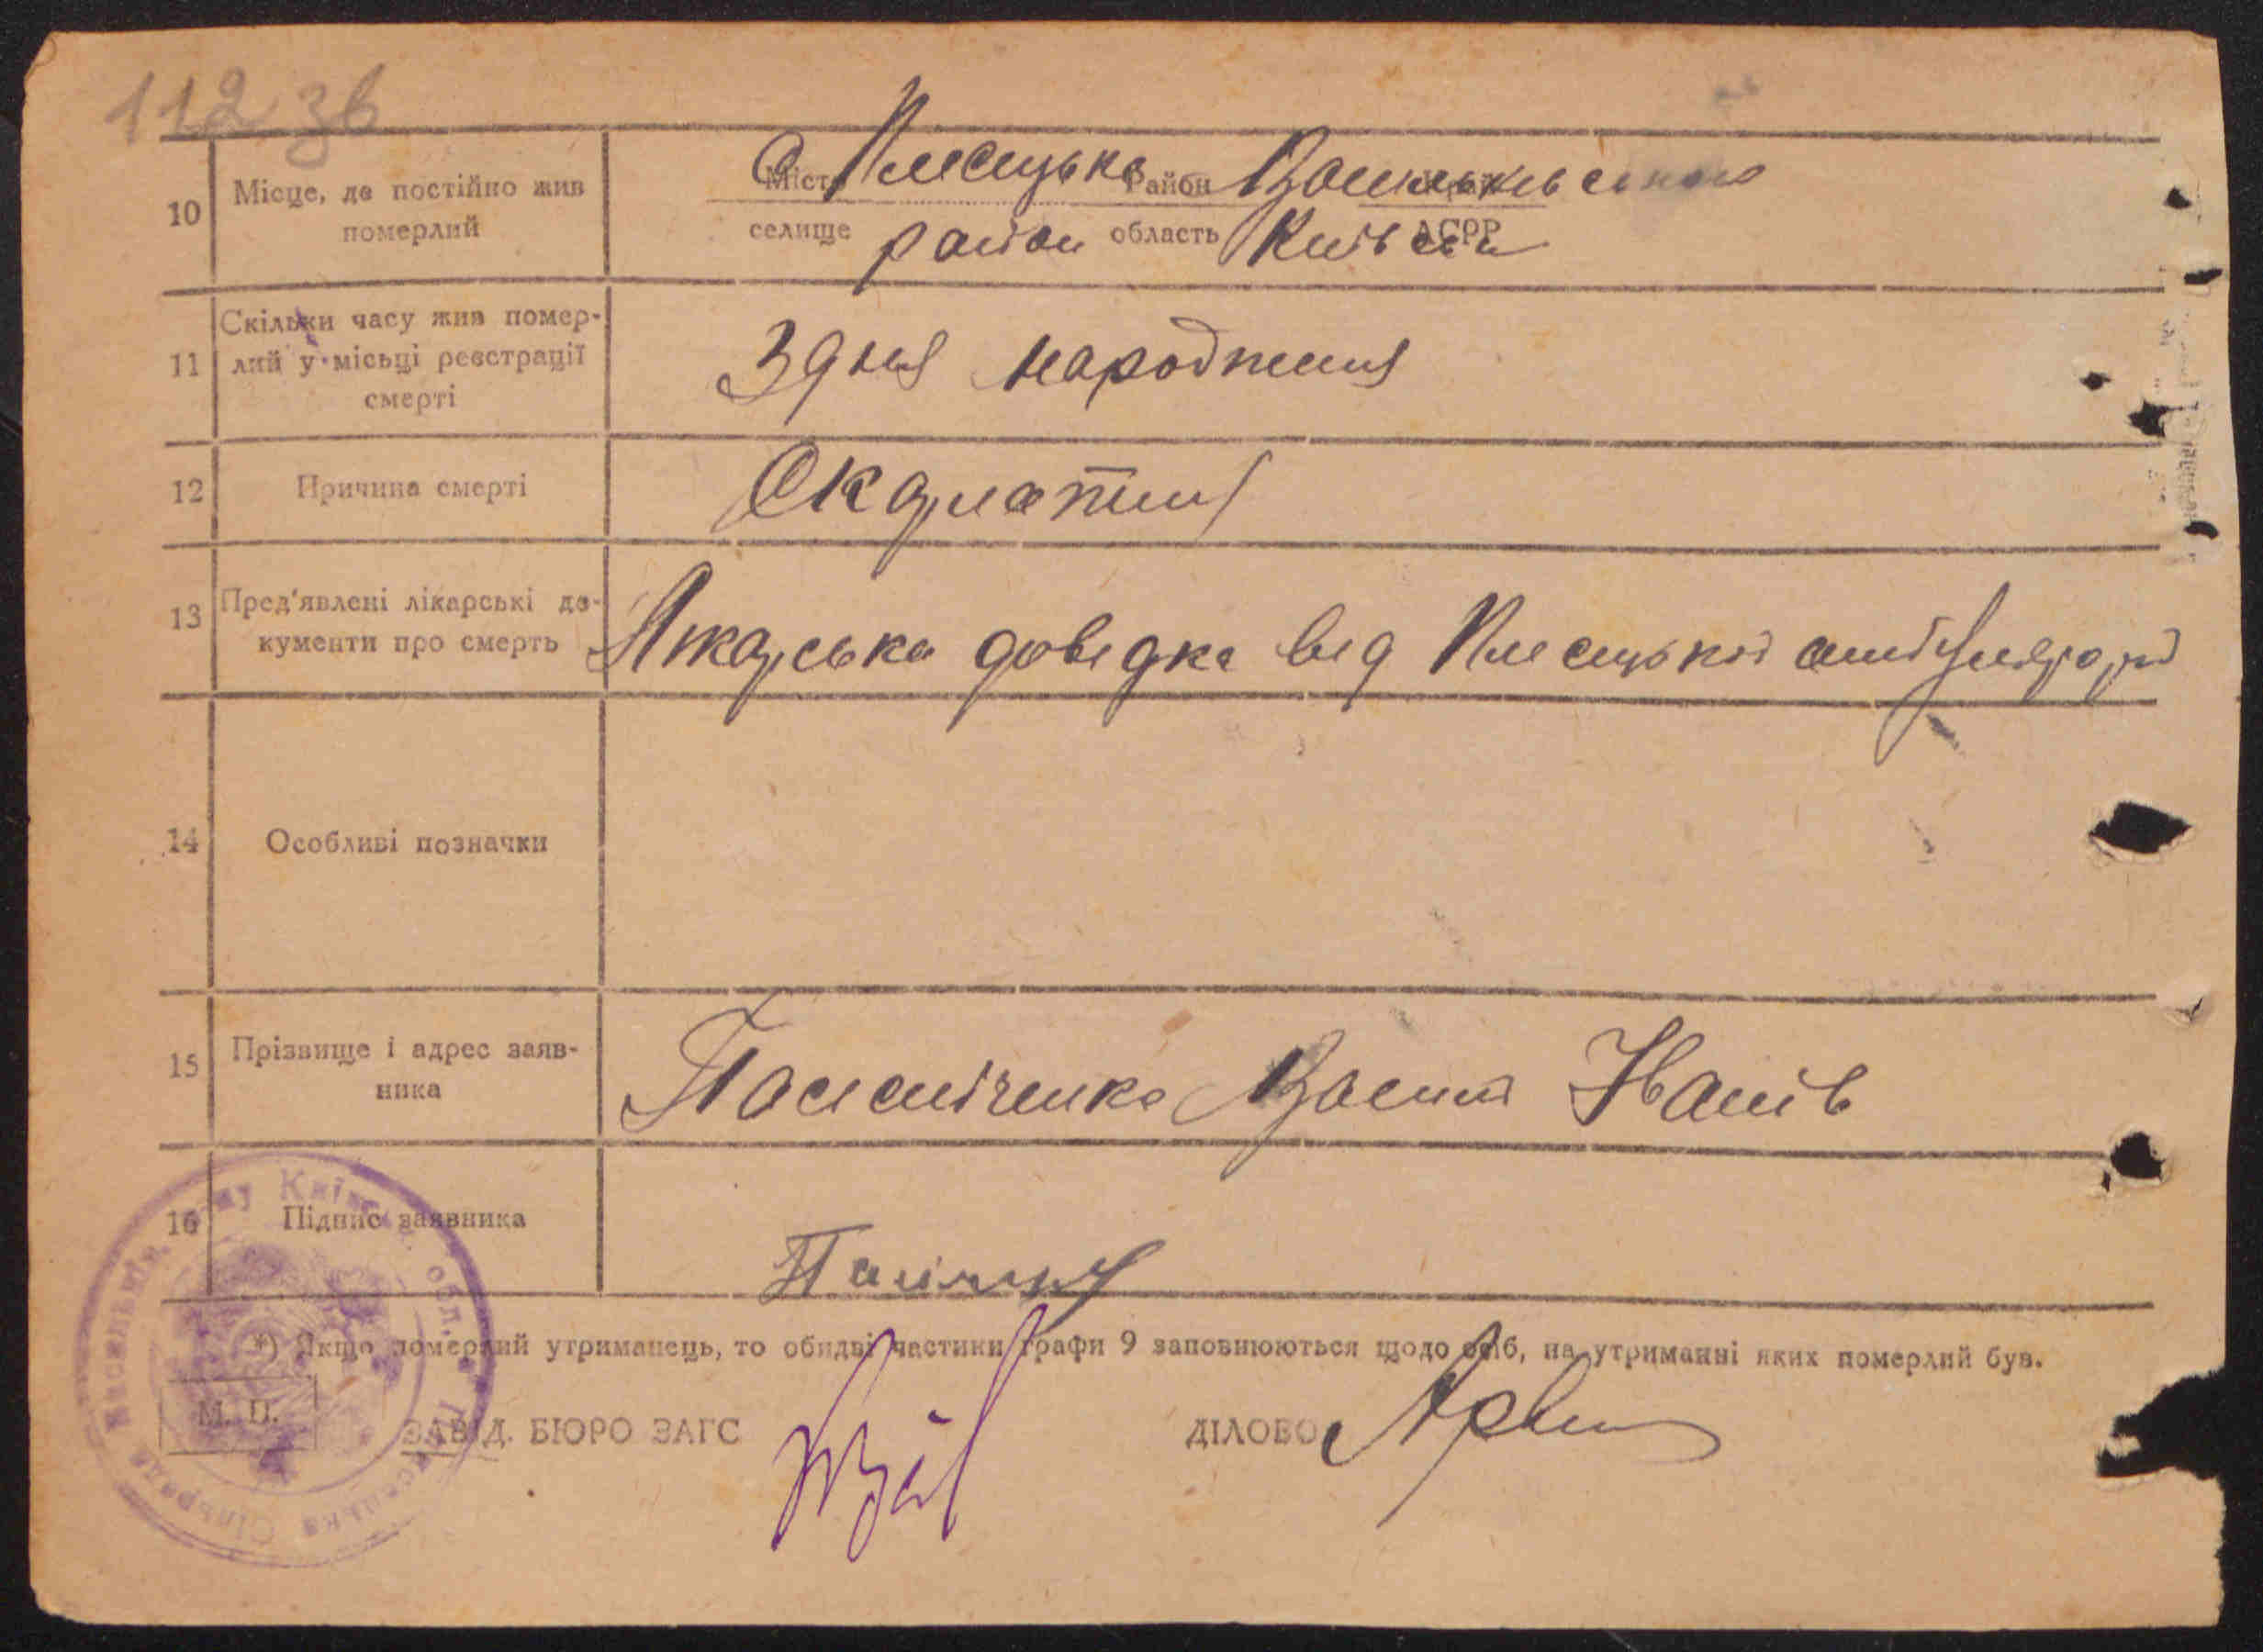 112 зв
10 Місце, де постійно жив померлий
с Плесецьке Васильківського
Місто Район
район Київська
селище область АСРР
11 Скільки часу жив помер-
лий у місьці реєстрації
смерті
З дня народження
12 Причина смерті
Скарлатина
13 Пред'явлені лікарські до-
кументи про смерть
Лікарська довідка від Плесецької амбулаторії
14 Особливі позначки
15 Прізвище і адрес заяв-
ника
Василь Іванів
16 Підпис заявника
*) Якщо померлий утриманець, то обидві частини графи 9 заповнюються щодо осіб, на утриманні яких померлий був.
М. П.
ЗАВІД. БЮРО ЗАГС ДІЛОВО